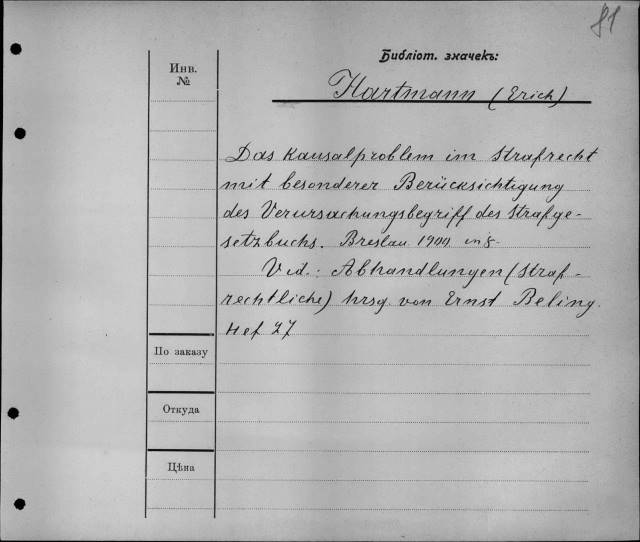 81
Библіот. значекъ:
Инв.
№
Hartmann (Erich)
Das Kausalproblem im Strafrecht
mit besonderer Berücksichtigung
des Verursachungsbegriff des Strafge-
setzbuchs. Breslau 1900. in 8-
Vid.: Abhandlungen (Straf-
rechtliche) hrsg. von Ernst Beling.
Hef 27
По заказу
Откуда
Цѣна